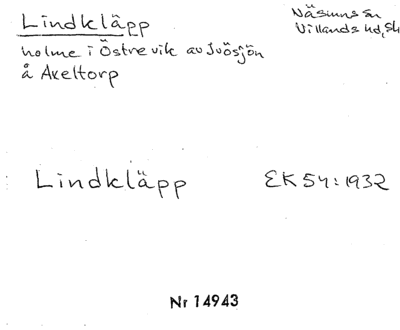 Lindkläpp
Näsums sn
Villands hd, Sk
holme i Östre vik av Ivösjön
å Axeltorp
Lindkläpp
EK 54:1932
Nr 14943